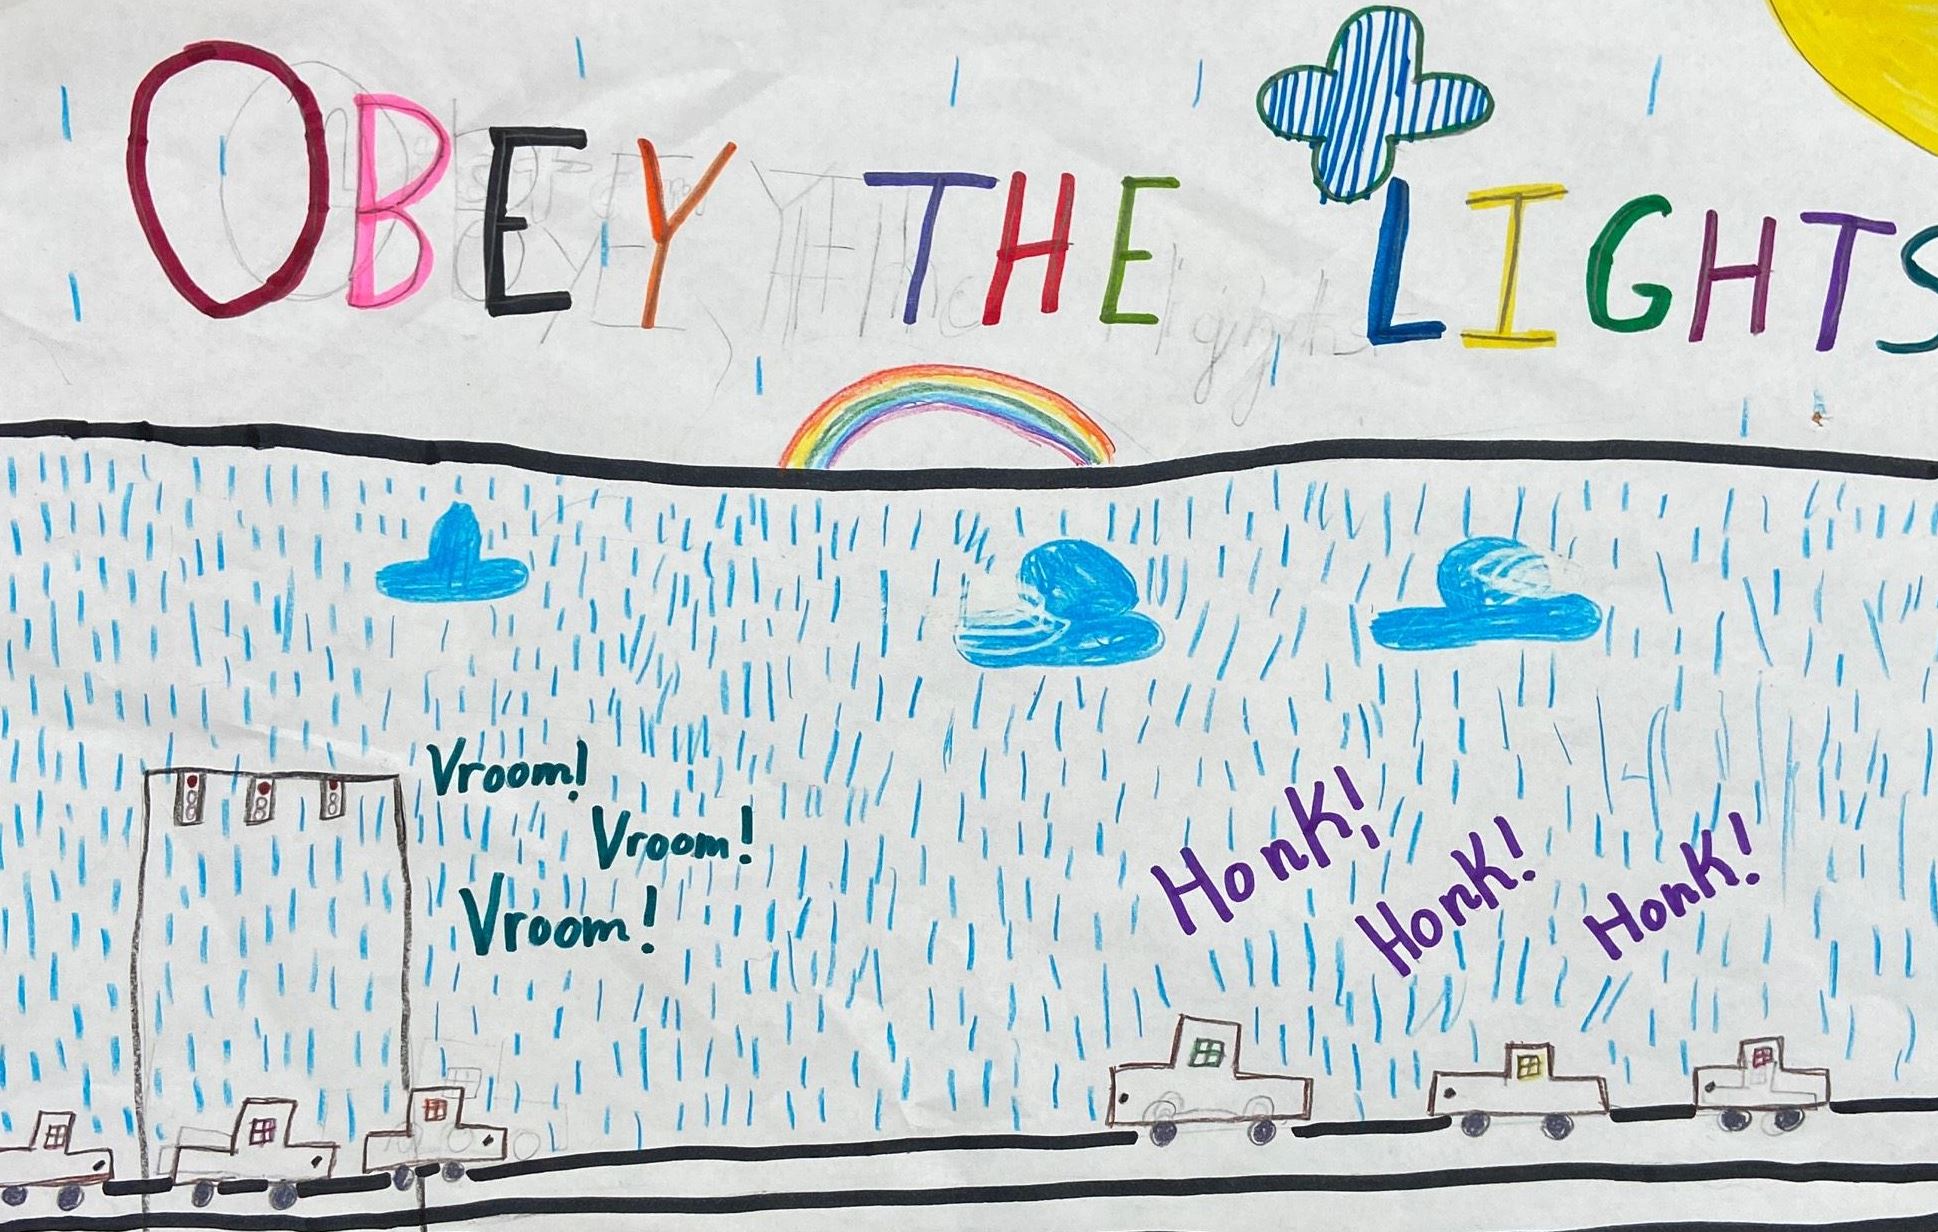 OBEY THE LIGHTS
Vroom!
Vroom!
Vroom!
Honk!
Honk!
Honk!